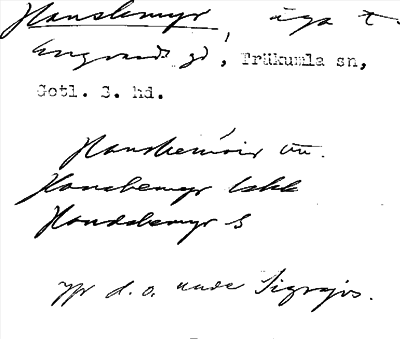 Hanskemyr, äga t.
Engvards gd, Träkumla sn,
Gotl. S. hd.
Hanskemöir un.
Hanskemyr lskk
Handskemyr S
Jfr d. o. unde Sigrajvs.